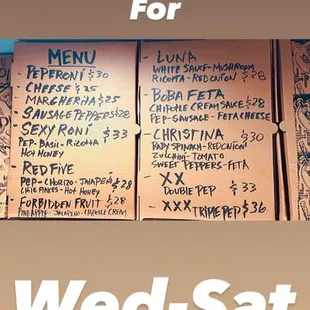 For
MENU
- PEPERONI $30
- CHEESE $25
- MARGHERITA $25
- SAUSAGE PEPPERS $28
- SEXY RONI $33
PEP - BASIL - RICOTTA
HOT HONEY
- RED FIVE
PEP - CHORIZO - JALAPEÑO $28
CHILE FLAKES - HOT HONEY
- FORBIDDEN FRUIT $28
PINEAPPLE JALAPEÑO - CHIPOTLE CREAM
- LUNA
WHITE SAUCE - MUSHROOM
RICOTTA - RED ONION $28
- BOBA FETA
CHIPOTLE CREAM SAUCE $28
PEP - SAUSAGE - FETA CHEESE
- CHRISTINA $30
BABY SPINACH - RED ONION
ZUCCHINI - TOMATO
SWEET PEPPERS - FETA
- XX
DOUBLE PEP $33
- XXX TRIPLE PEP $36
Wed-Sat